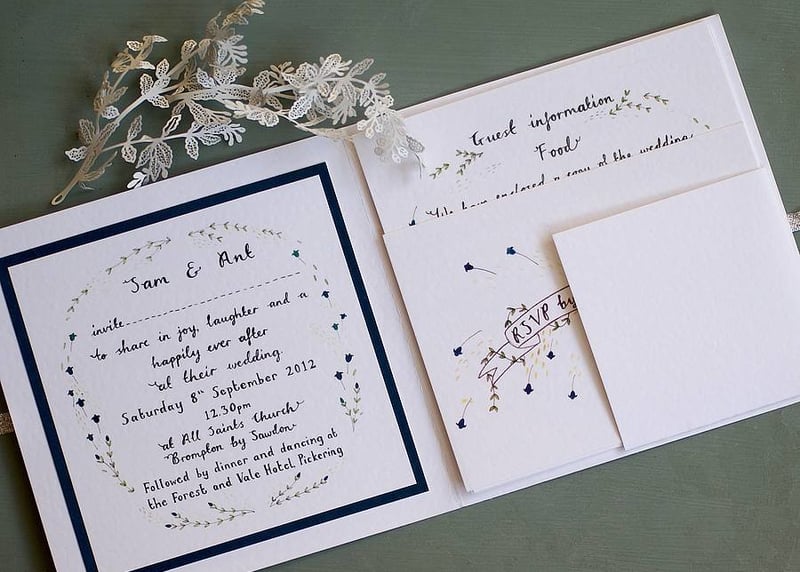 Sam & Ant
invite
to share in joy, laughter and a
happily ever after
at their wedding.
Saturday 8th September 2012
12.30pm
at All Saints Church
Brompton by Sawdon
Followed by dinner and dancing at
the Forest and Vale Hotel Pickering
Guest information
Food
We have enclosed a copy of the wedding
RSVP by